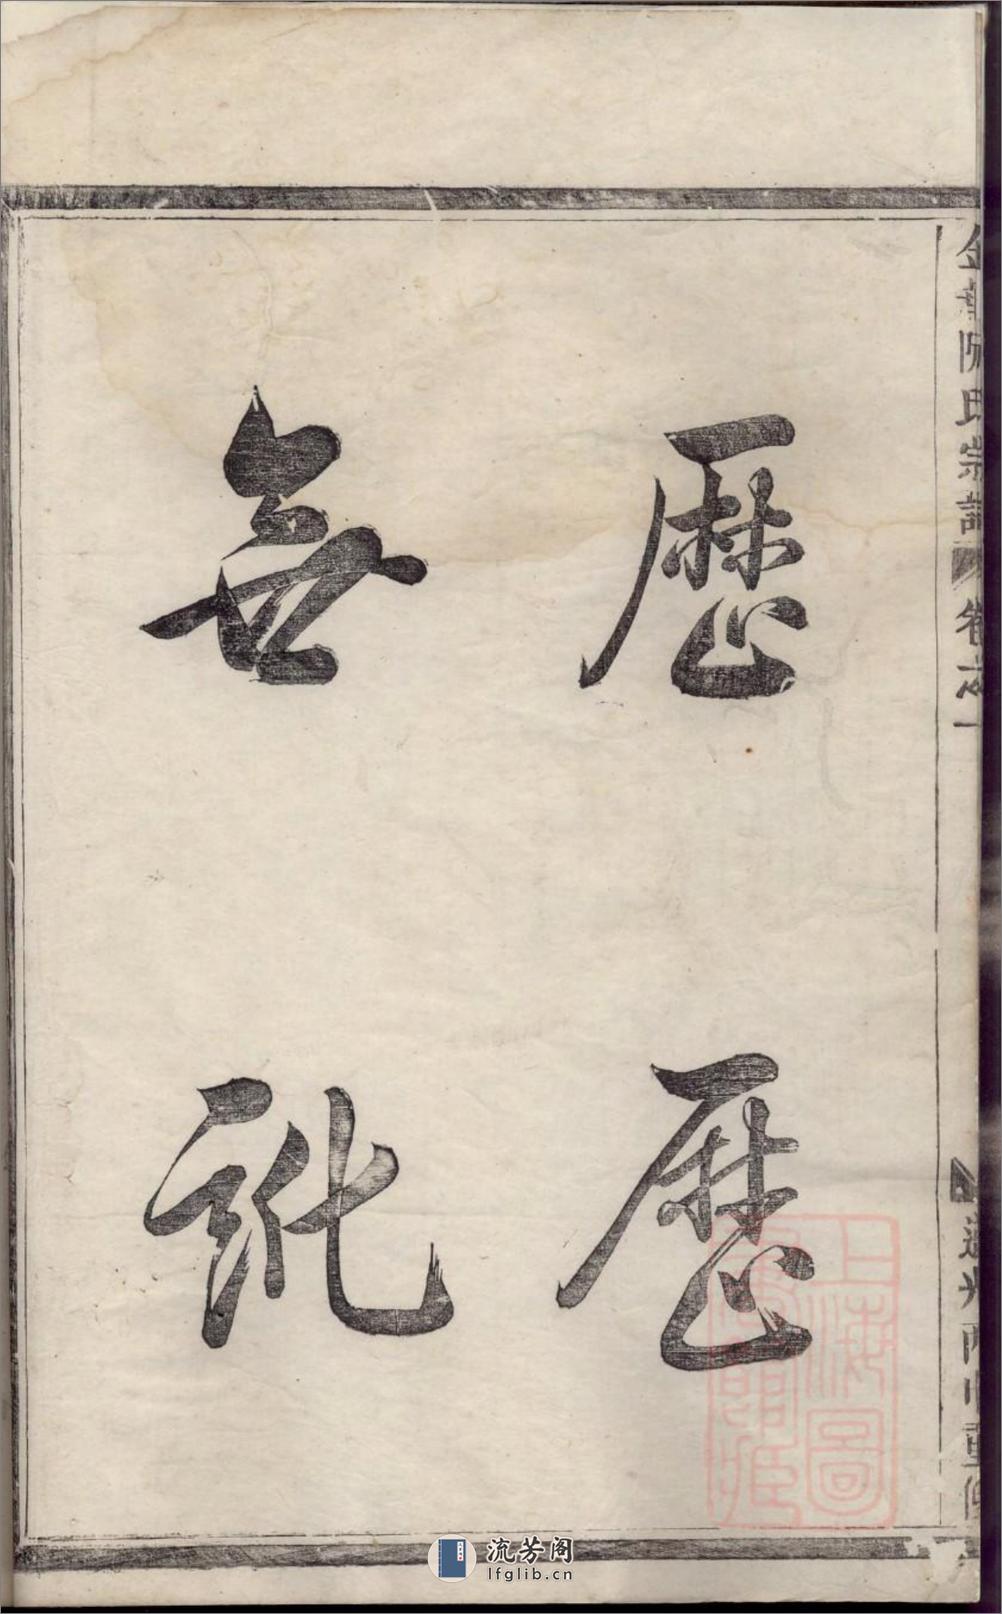 金華阮氏宗譜 卷之一 道光丙申重修
歷歷
無訛
上海圖
書館藏
流芳阁
lfglib.cn